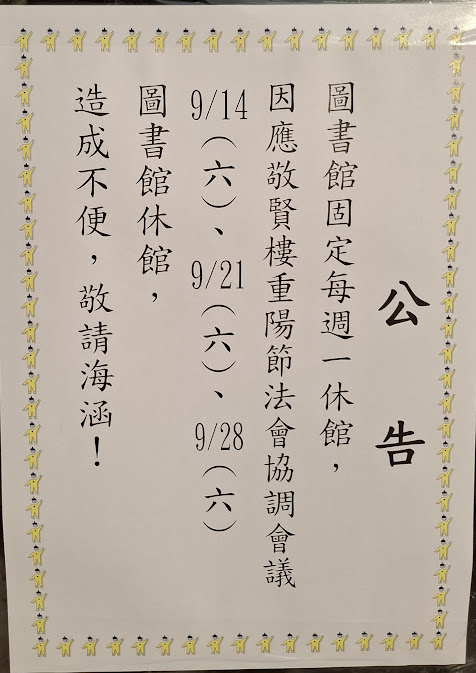 公告
圖書館固定每週一休館，
因應敬賢樓重陽節法會協調會議
9/14（六）、9/21（六）、9/28（六）
圖書館休館，
造成不便，敬請海涵！